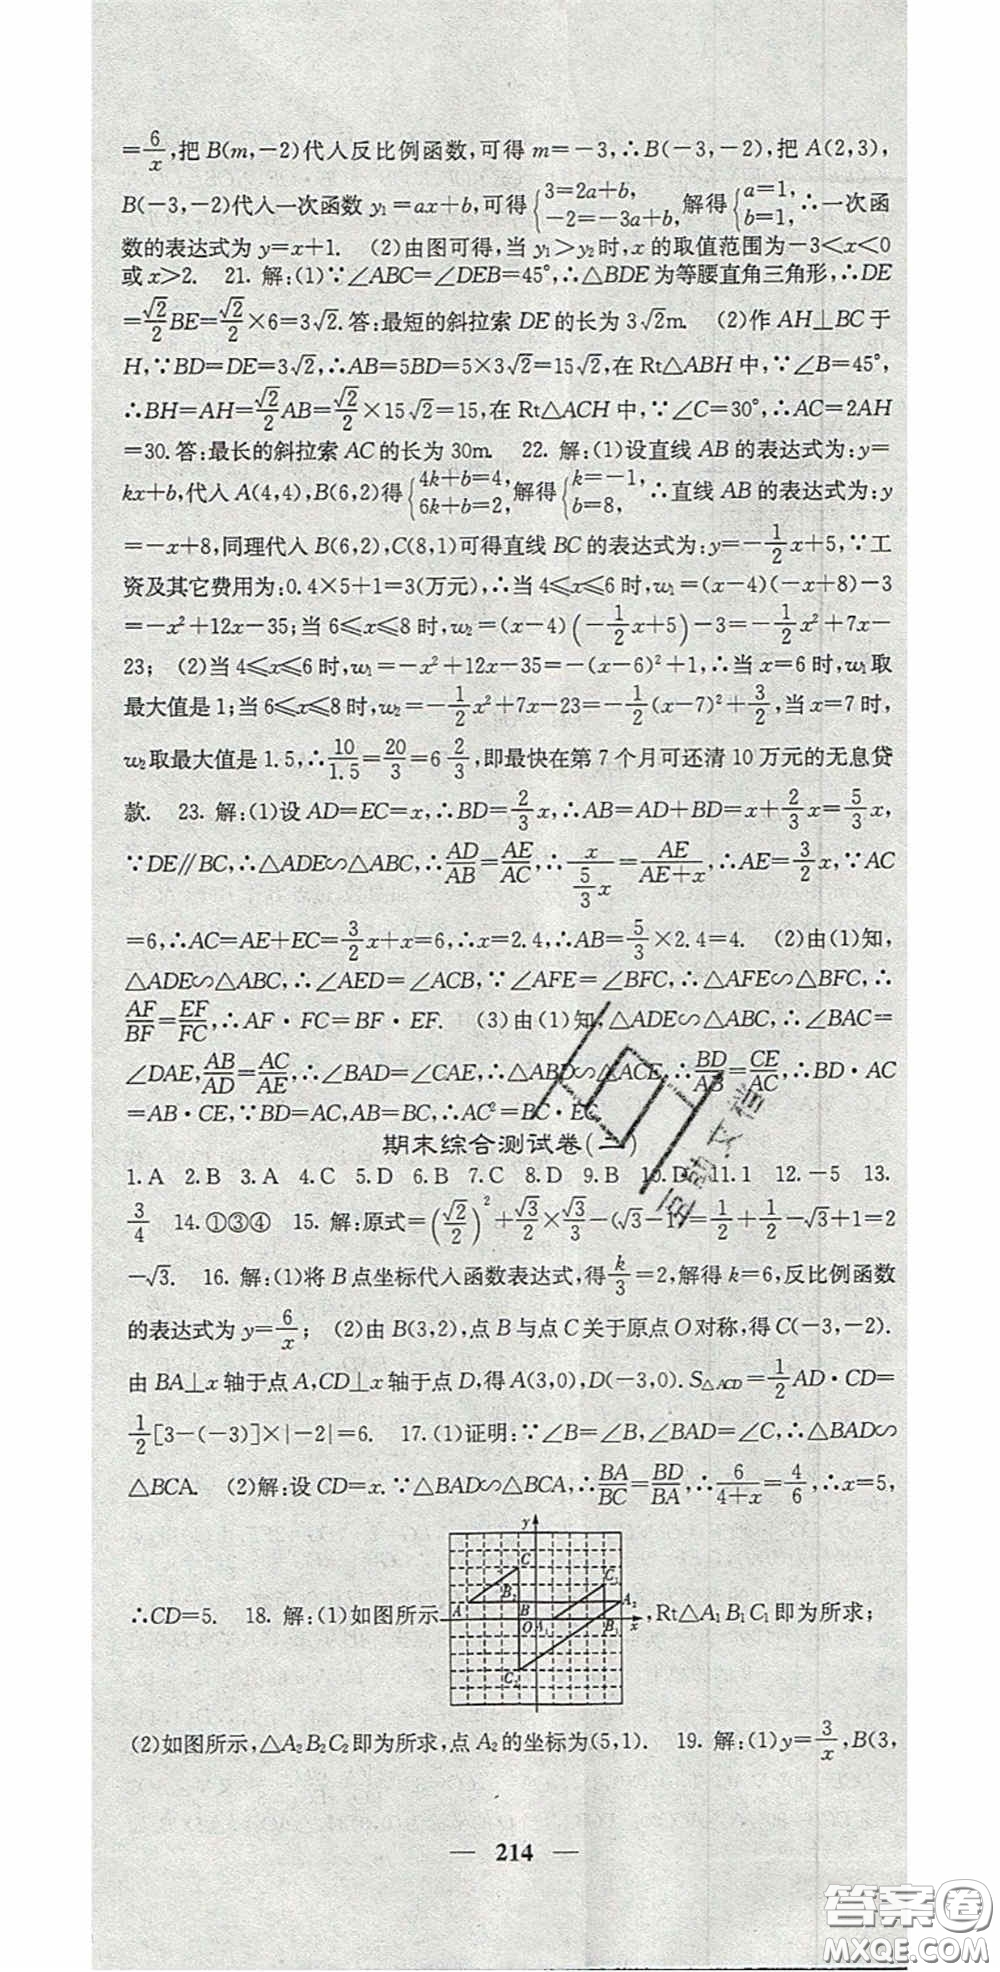 =6/x,把B(m,-2)代入反比例函数,可得m=-3,∴B(-3,-2),把A(2,3),
B(-3,-2)代入一次函数y₁=ax+b,可得{3=2a+b, -2=-3a+b, 解得{a=1, b=1, ∴一次函
数的表达式为y=x+1. (2)由图可得,当y₁>y₂时,x的取值范围为-3<x<0
或x>2. 21. 解:(1)∵∠ABC=∠DEB=45°,∴△BDE为等腰直角三角形,∴DE
=√2/2BE=√2/2×6=3√2.答:最短的斜拉索DE的长为3√2m. (2)作AH⊥BC于
H,∵BD=DE=3√2,∴AB=5BD=5×3√2=15√2,在Rt△ABH中,∵∠B=45°,
∴BH=AH=√2/2AB=√2/2×15√2=15,在Rt△ACH中,∵∠C=30°,∴AC=2AH
=30.答:最长的斜拉索AC的长为30m. 22. 解:(1)设直线AB的表达式为:y=
kx+b,代入A(4,4),B(6,2)得{4k+b=4, 6k+b=2, 解得{k=-1, b=8, ∴直线AB的表达式为:y
=-x+8,同理代入B(6,2),C(8,1)可得直线BC的表达式为:y=-1/2x+5,∵工
资及其它费用为:0.4×5+1=3(万元),∴当4≤x≤6时,w₁=(x-4)(-x+8)-3
=-x²+12x-35;当6≤x≤8时,w₂=(x-4)(-1/2x+5)-3=-1/2x²+7x-
23; (2)当4≤x≤6时,w₁=-x²+12x-35=-(x-6)²+1,∴当x=6时,w₁取
最大值是1;当6≤x≤8时,w₂=-1/2x²+7x-23=-1/2(x-7)²+3/2,当x=7时,
w₂取最大值是1.5,∴10/1.5=20/3=6 2/3,即最快在第7个月可还清10万元的无息贷
款. 23. 解:(1)设AD=EC=x,∴BD=2/3x,∴AB=AD+BD=x+2/3x=5/3x,
∵DE∥BC,∴△ADE∽△ABC,∴AD/AB=AE/AC,∴x/(5/3x)=AE/(AE+x),∴AE=3/2x,∵AC
=6,∴AC=AE+EC=3/2x+x=6,∴x=2.4,∴AB=5/3×2.4=4. (2)由(1)知,
△ADE∽△ABC,∴∠AED=∠ACB,∵∠AFE=∠BFC,∴△AFE∽△BFC,∴
AF/BF=EF/FC,∴AF·FC=BF·EF. (3)由(1)知,△ADE∽△ABC,∴∠BAC=
∠DAE,AB/AD=AC/AE,∴∠BAD=∠CAE,∴△ABD∽△ACE,∴BD/AB=CE/AC,∴BD·AC
=AB·CE,∵BD=AC,AB=BC,∴AC²=BC·EC.
期末综合测试卷(二)
1. A 2. B 3. A 4. C 5. D 6. B 7. C 8. D 9. B 10. D 11. 1 12. -5 13.
3/4 14. ①③④ 15. 解:原式=(√2/2)²+√3/2×√3/3-(√3-1)=1/2+1/2-√3+1=2
-√3. 16. 解:(1)将B点坐标代入函数表达式,得k/3=2,解得k=6,反比例函数
的表达式为y=6/x; (2)由B(3,2),点B与点C关于原点O对称,得C(-3,-2).
由BA⊥x轴于点A,CD⊥x轴于点D,得A(3,0),D(-3,0).S△ACD=1/2AD·CD=
1/2[3-(-3)]×|-2|=6. 17. (1)证明:∵∠B=∠B,∠BAD=∠C,∴△BAD∽
△BCA. (2)解:设CD=x.∵△BAD∽△BCA,∴BA/BC=BD/BA,∴6/(4+x)=4/6,∴x=5,
y
C
B₂ C₁
A B A₂
O A₁ B₁ x
C₂
∴CD=5. 18. 解:(1)如图所示,Rt△A₁B₁C₁即为所求;
(2)如图所示,△A₂B₂C₂即为所求,点A₂的坐标为(5,1). 19. 解:(1)y=3/x,B(3,
— 214 —
答案卷
MXQE.COM